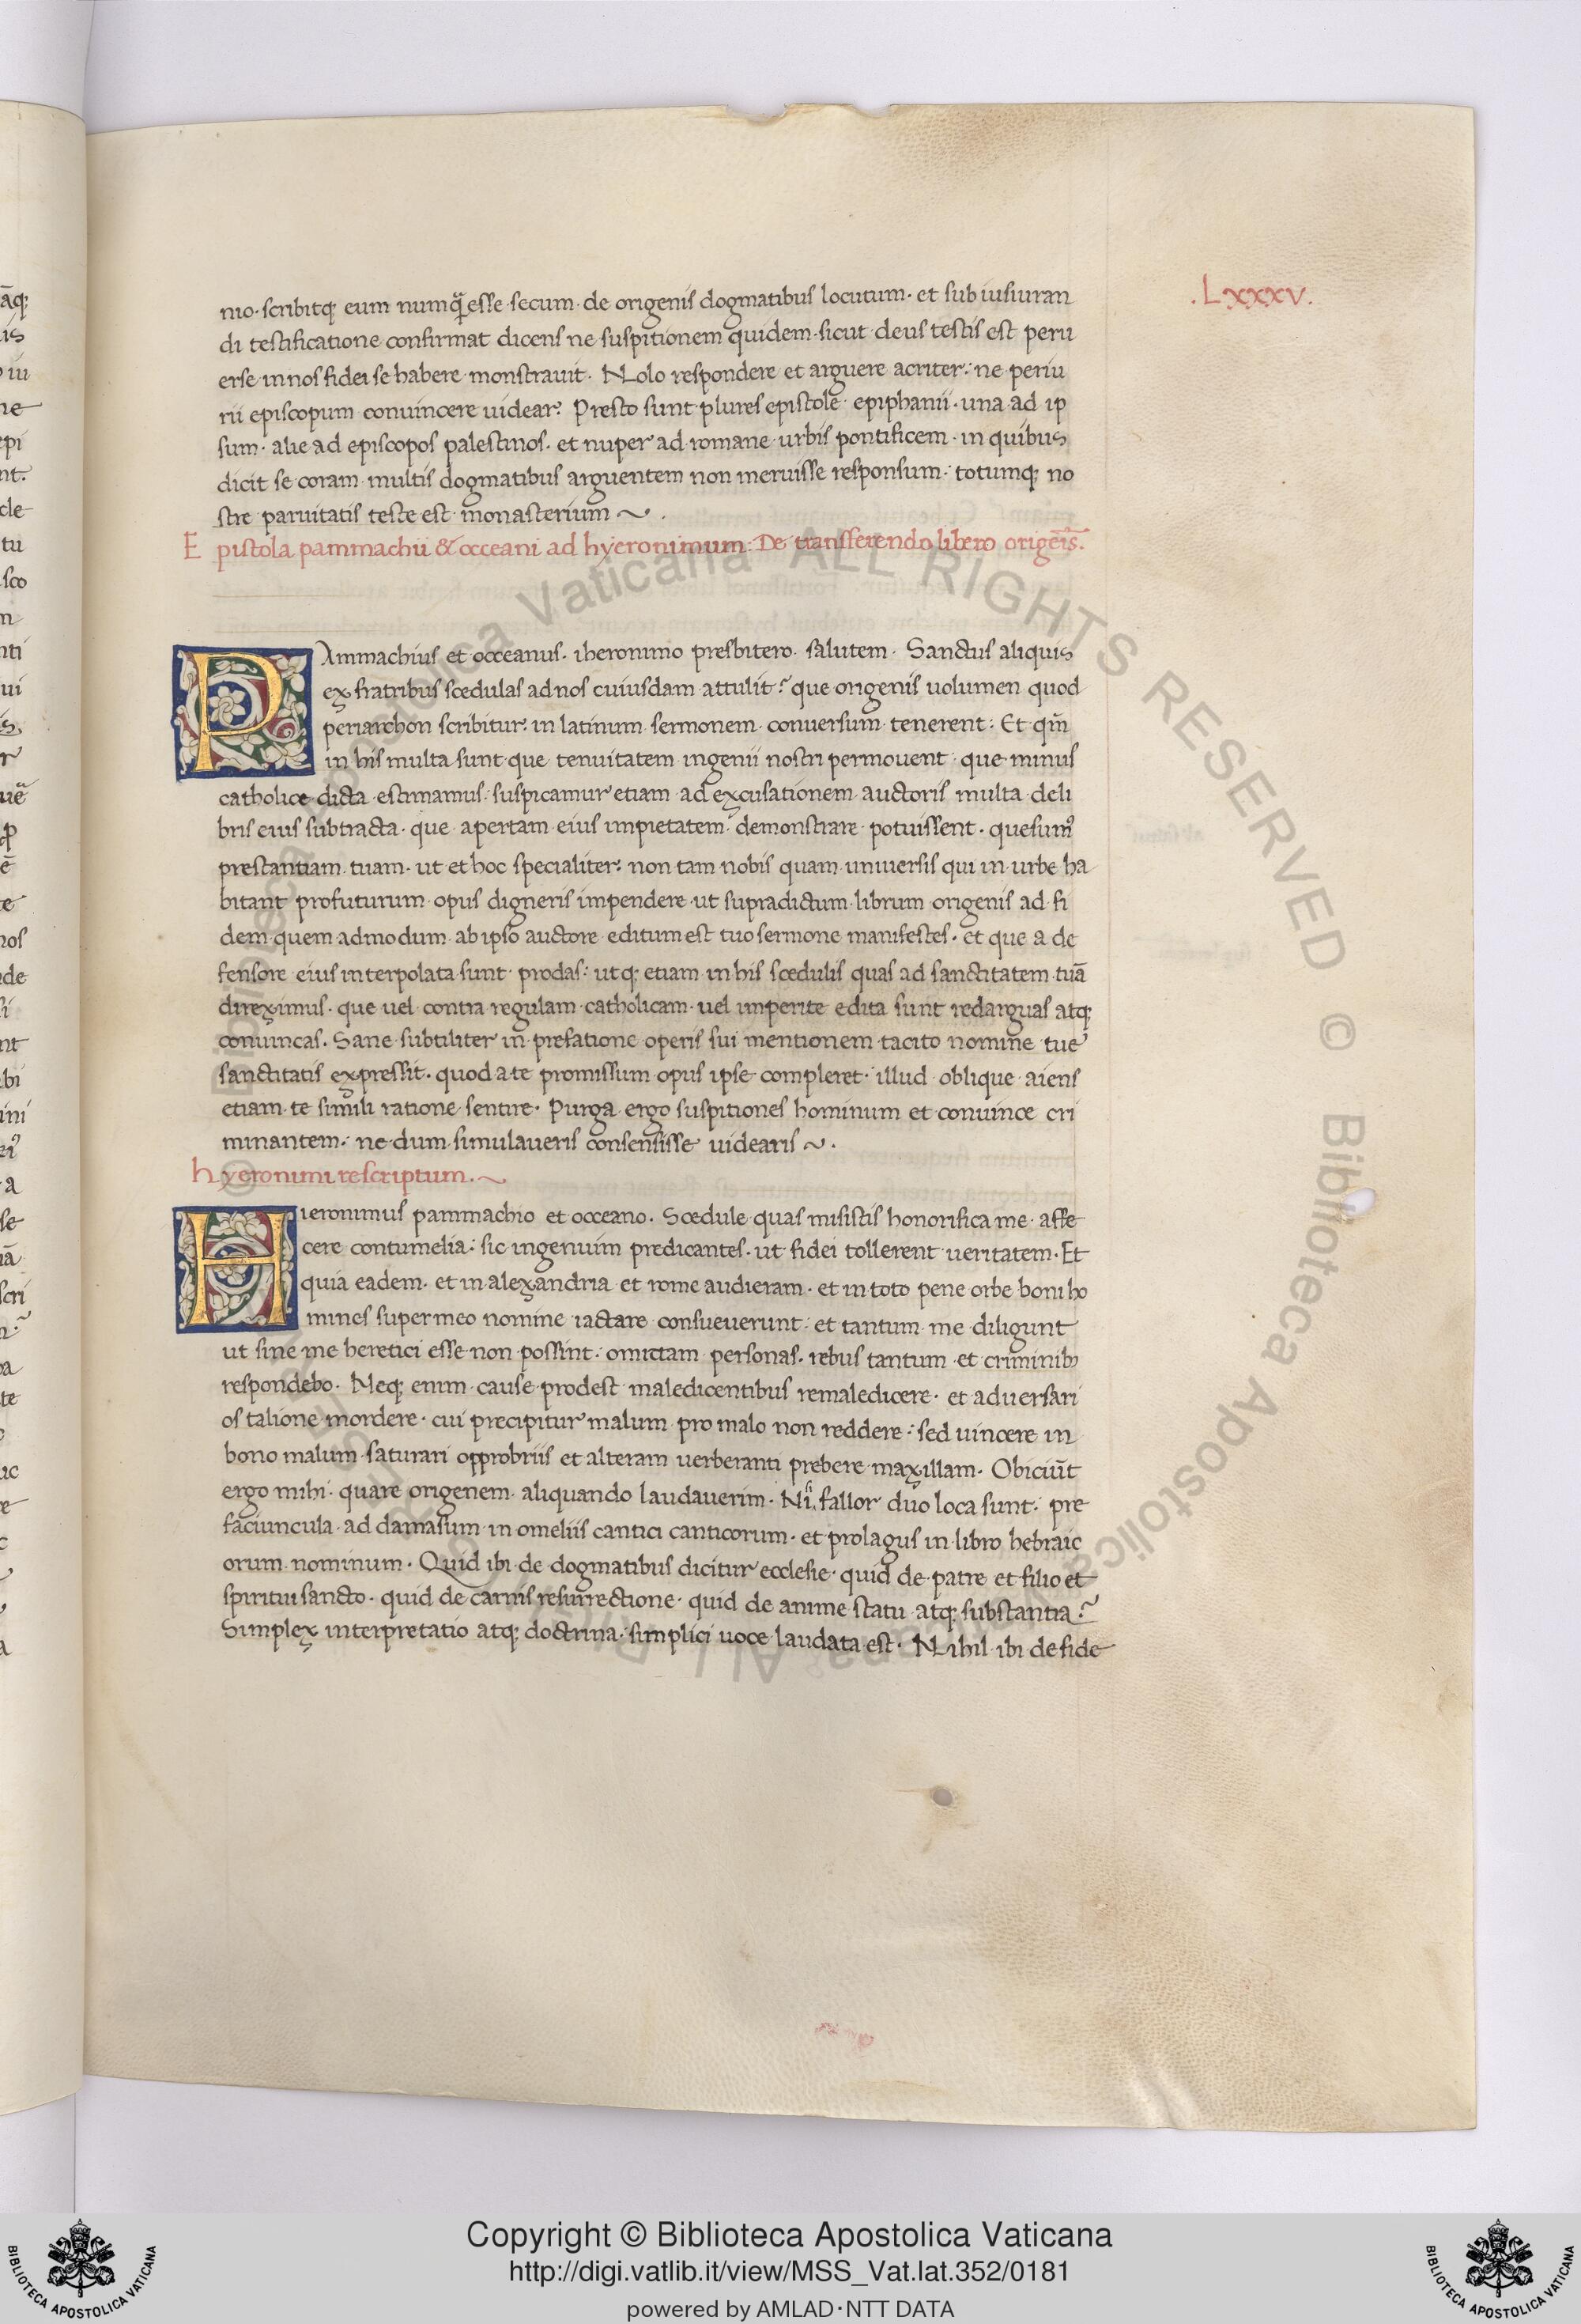 .Lxxxv.
nio· scribitq; eum numq̄ esse secum· de origenis dogmatibus locutum· et sub iusiuran
di testificatione confirmat dicens ne suspitionem quidem· sicut deus testis est peru
erse in nos fidei se habere monstrauit· Nolo respondere et arguere acriter: ne periu
rii episcopum conuincere uidear? Presto sunt plures epistole epiphanii· una ad ip
sum· alie ad episcopos palestinos· et nuper ad romane urbis pontificem· in quibus
dicit se coram multis dogmatibus arguentem non meruisse responsum: totumq; no
stre paruitatis teste est monasterium ~ .
Epistola pammachii & occeani ad hyeronimum: De transferendo libero origeīs.
PAmmachius et occeanus· iheronimo presbitero· salutem· Sanctus aliquis
ex fratribus scedulas ad nos cuiusdam attulit: que origenis uolumen quod
periarchon scribitur: in latinum sermonem conuersum tenerent: Et qm̄
in his multa sunt que tenuitatem ingenii nostri permouent· que minus
catholice dicta estimamus: suspicamur etiam ad excusationem auctoris multa deli
bris eius subtracta· que apertam eius impietatem demonstrare potuissent· quesumꝰ
prestantiam tuam· ut et hoc specialiter: non tam nobis quam uniuersis qui in urbe ha
bitant profuturum opus digneris impendere ut supradictum librum origenis ad fi
dem quem admodum ab ipso auctore editum est tuo sermone manifestes· et que a de
fensore eius interpolata sunt prodas: utq; etiam in his scedulis quas ad sanctitatem tuā
direximus· que uel contra regulam catholicam uel imperite edita sunt redarguas atq;
conuincas· Sane subtiliter in prefatione operis sui mentionem tacito nomine tue
sanctitatis expressit· quod a te promissum opus ipse compleret: illud oblique aiens
etiam te simili ratione sentire· Purga ergo suspitiones hominum et conuince cri
minantem: ne dum simulaueris consensisse uidearis ~ .
hyeronimi rescriptum. ~
Hieronimus pammachio et occeano· Scedule quas misistis honorifica me affe
cere contumelia: sic ingenuim predicantes· ut fidei tollerent ueritatem· Et
quia eadem· et in alexandria et rome audieram· et in toto pene orbe boni ho
mines super meo nomine iactare consueuerunt: et tantum me diligunt
ut sine me heretici esse non possint: omictam personas· rebus tantum et criminibꝫ
respondebo· Neq; enim cause prodest maledicentibus remaledicere· et aduersari
os talione mordere· cui precipitur malum pro malo non reddere: sed uincere in
bono malum saturari opprobriis et alteram uerberanti prebere maxillam· Obiciūt
ergo mihi· quare origenem aliquando laudauerim· Ni fallor duo loca sunt: pre
faciuncula ad damasum in omeliis cantici canticorum· et prolagus in libro hebraic
orum nominum· Quid ibi de dogmatibus dicitur ecclesie· quid de patre et filio et
spiritui sancto· quid de carnis resurrectione· quid de anime statu atq; substantia?
Simplex interpretatio atq; doctrina: simplici uoce laudata est· Nihil ibi de fide
Copyright © Biblioteca Apostolica Vaticana
http://digi.vatlib.it/view/MSS_Vat.lat.352/0181
powered by AMLAD·NTT DATA